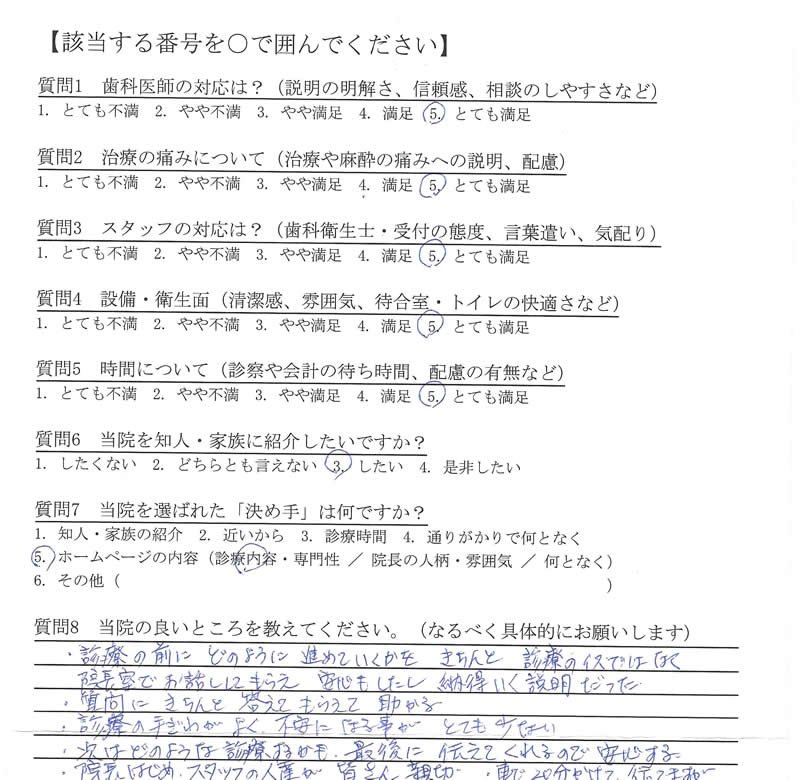 【該当する番号を〇で囲んでください】
質問1　歯科医師の対応は？（説明の明解さ、信頼感、相談のしやすさなど）
1. とても不満　2. やや不満　3. やや満足　4. 満足　5. とても満足
質問2　治療の痛みについて（治療や麻酔の痛みへの説明、配慮）
1. とても不満　2. やや不満　3. やや満足　4. 満足　5. とても満足
質問3　スタッフの対応は？（歯科衛生士・受付の態度、言葉遣い、気配り）
1. とても不満　2. やや不満　3. やや満足　4. 満足　5. とても満足
質問4　設備・衛生面（清潔感、雰囲気、待合室・トイレの快適さなど）
1. とても不満　2. やや不満　3. やや満足　4. 満足　5. とても満足
質問5　時間について（診察や会計の待ち時間、配慮の有無など）
1. とても不満　2. やや不満　3. やや満足　4. 満足　5. とても満足
質問6　当院を知人・家族に紹介したいですか？
1. したくない　2. どちらとも言えない　3. したい　4. 是非したい
質問7　当院を選ばれた「決め手」は何ですか？
1. 知人・家族の紹介　2. 近いから　3. 診療時間　4. 通りがかりで何となく
5. ホームページの内容（診療内容・専門性 ／ 院長の人柄・雰囲気 ／ 何となく）
6. その他（　　　　　　　　　　　　　　　　　　　　）
質問8　当院の良いところを教えてください。（なるべく具体的にお願いします）
・診療の前に どのように 進めていくかを きちんと 診療のイスではなく
院長室でお話ししてもらえ 安心もしたし 納得いく説明だった
・質問に きちんと 答えて もらえて 助かる
・診療の手ぎわが よく、不安に なる事が とても 少ない
・次は どのような 診療するかも、最後に 伝えて くれるので 安心する
・院長はじめ、スタッフの人達が 皆さん 親切